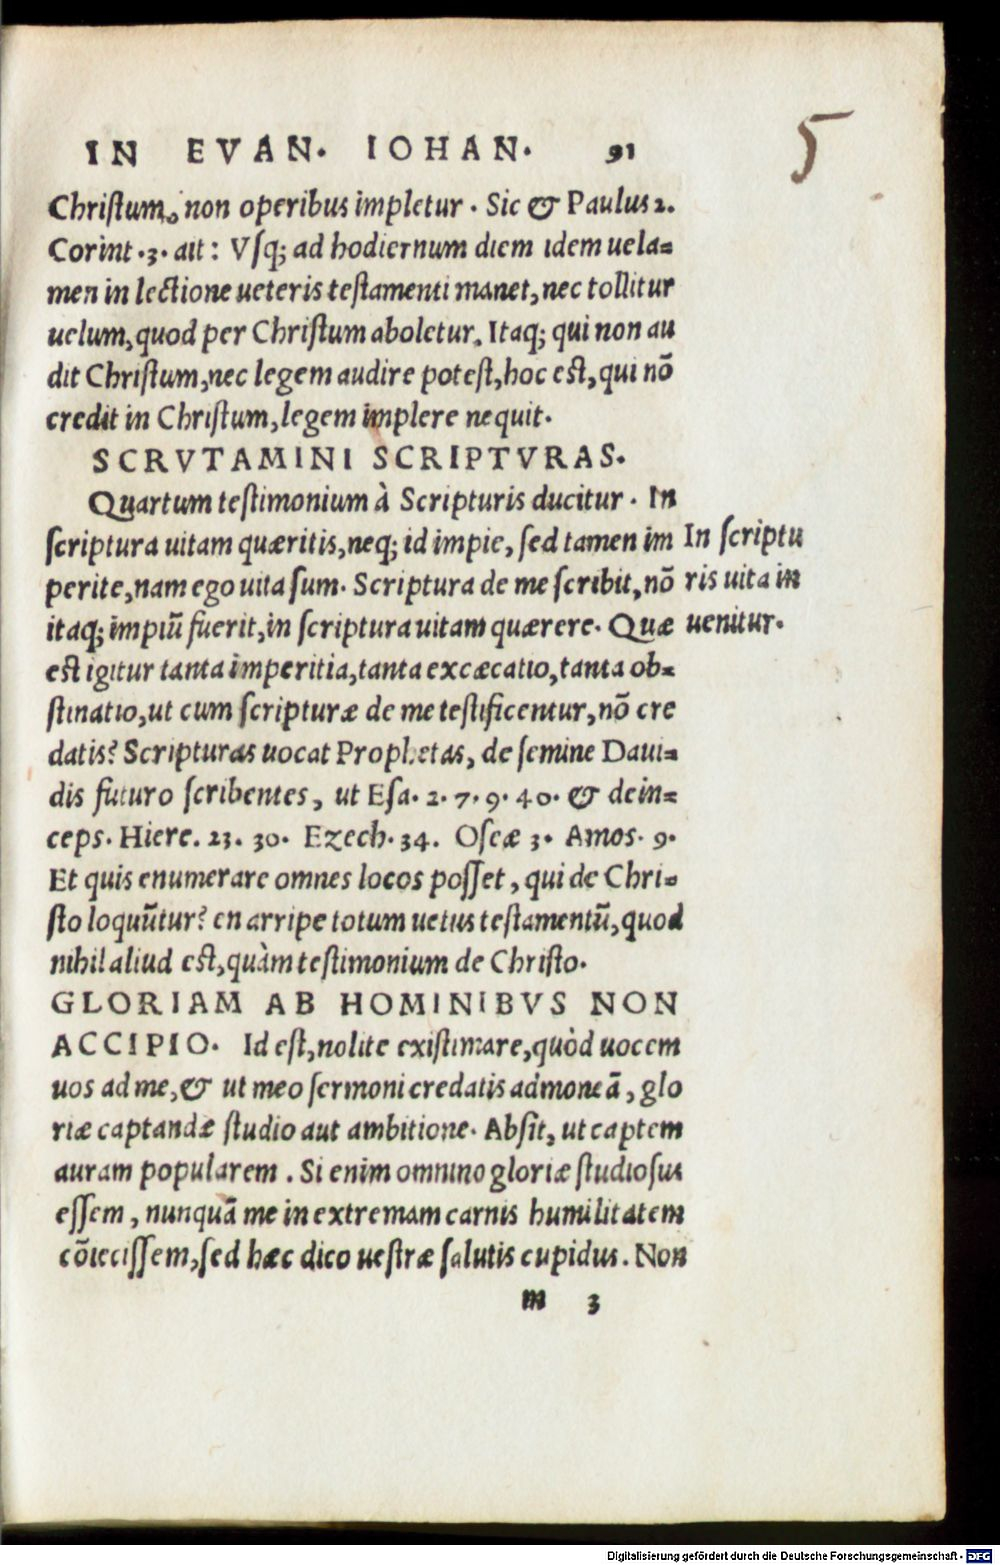 IN EVAN. IOHAN. 91
5
Chriſtum, non operibus impletur. Sic & Paulus 2.
Corint. 3. ait: Vſq; ad hodiernum diem idem uela-
men in lectione ueteris teſtamenti manet, nec tollitur
uelum, quod per Chriſtum aboletur. Itaq; qui non au
dit Chriſtum, nec legem audire poteſt, hoc eſt, qui nõ
credit in Chriſtum, legem implere nequit.
SCRVTAMINI SCRIPTVRAS.
Quartum teſtimonium à Scripturis ducitur. In
ſcriptura uitam quæritis, neq; id impie, ſed tamen im
perite, nam ego uita ſum. Scriptura de me ſcribit, nõ
itaq; impiũ fuerit, in ſcriptura uitam quærere. Quæ
eſt igitur tanta imperitia, tanta excæcatio, tanta ob-
ſtinatio, ut cum ſcripturæ de me teſtificentur, nõ cre
datis? Scripturas uocat Prophetas, de ſemine Daui-
dis futuro ſcribentes, ut Eſa. 2. 7. 9. 40. & dein-
ceps. Hiere. 23. 30. Ezech. 34. Oſeæ 3. Amos. 9.
Et quis enumerare omnes locos poſſet, qui de Chri-
ſto loquũtur? en arripe totum uetus teſtamentũ, quod
nihil aliud eſt, quàm teſtimonium de Chriſto.
GLORIAM AB HOMINIBVS NON
ACCIPIO. Id eſt, nolite exiſtimare, quòd uocem
uos ad me, & ut meo ſermoni credatis admoneã, glo
riæ captandæ ſtudio aut ambitione. Abſit, ut captem
auram popularem. Si enim omnino gloriæ ſtudioſus
eſſem, nunquã me in extremam carnis humilitatem
cõieciſſem, ſed hæc dico ueſtræ ſalutis cupidus. Non
m 3
In ſcriptu
ris uita in
uenitur.
Digitalisierung gefördert durch die Deutsche Forschungsgemeinschaft - DFG